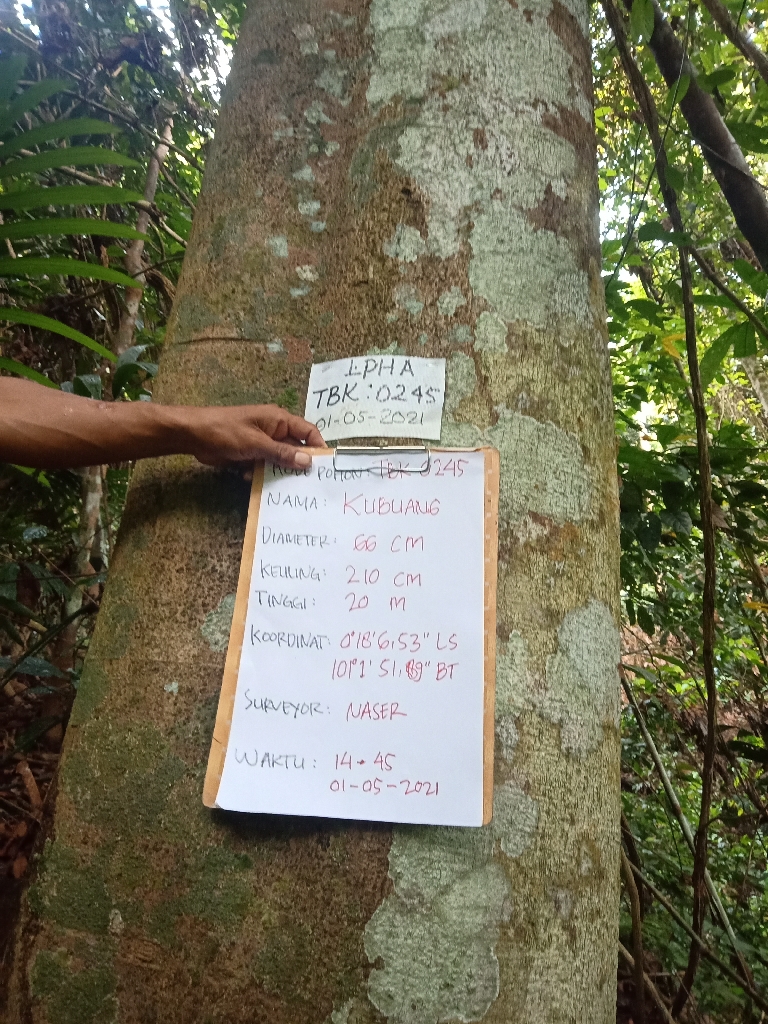 LPHA
TBK : 0245
01-05-2021
POHON TBK 0245
NAMA : KUBUANG
DIAMETER : 66 CM
KELILING : 210 CM
TINGGI : 20 M
KOORDINAT : 0°18'6,53" LS
101°1' 51, 9" BT
SURVEYOR : NASER
WAKTU : 14.45
01-05-2021